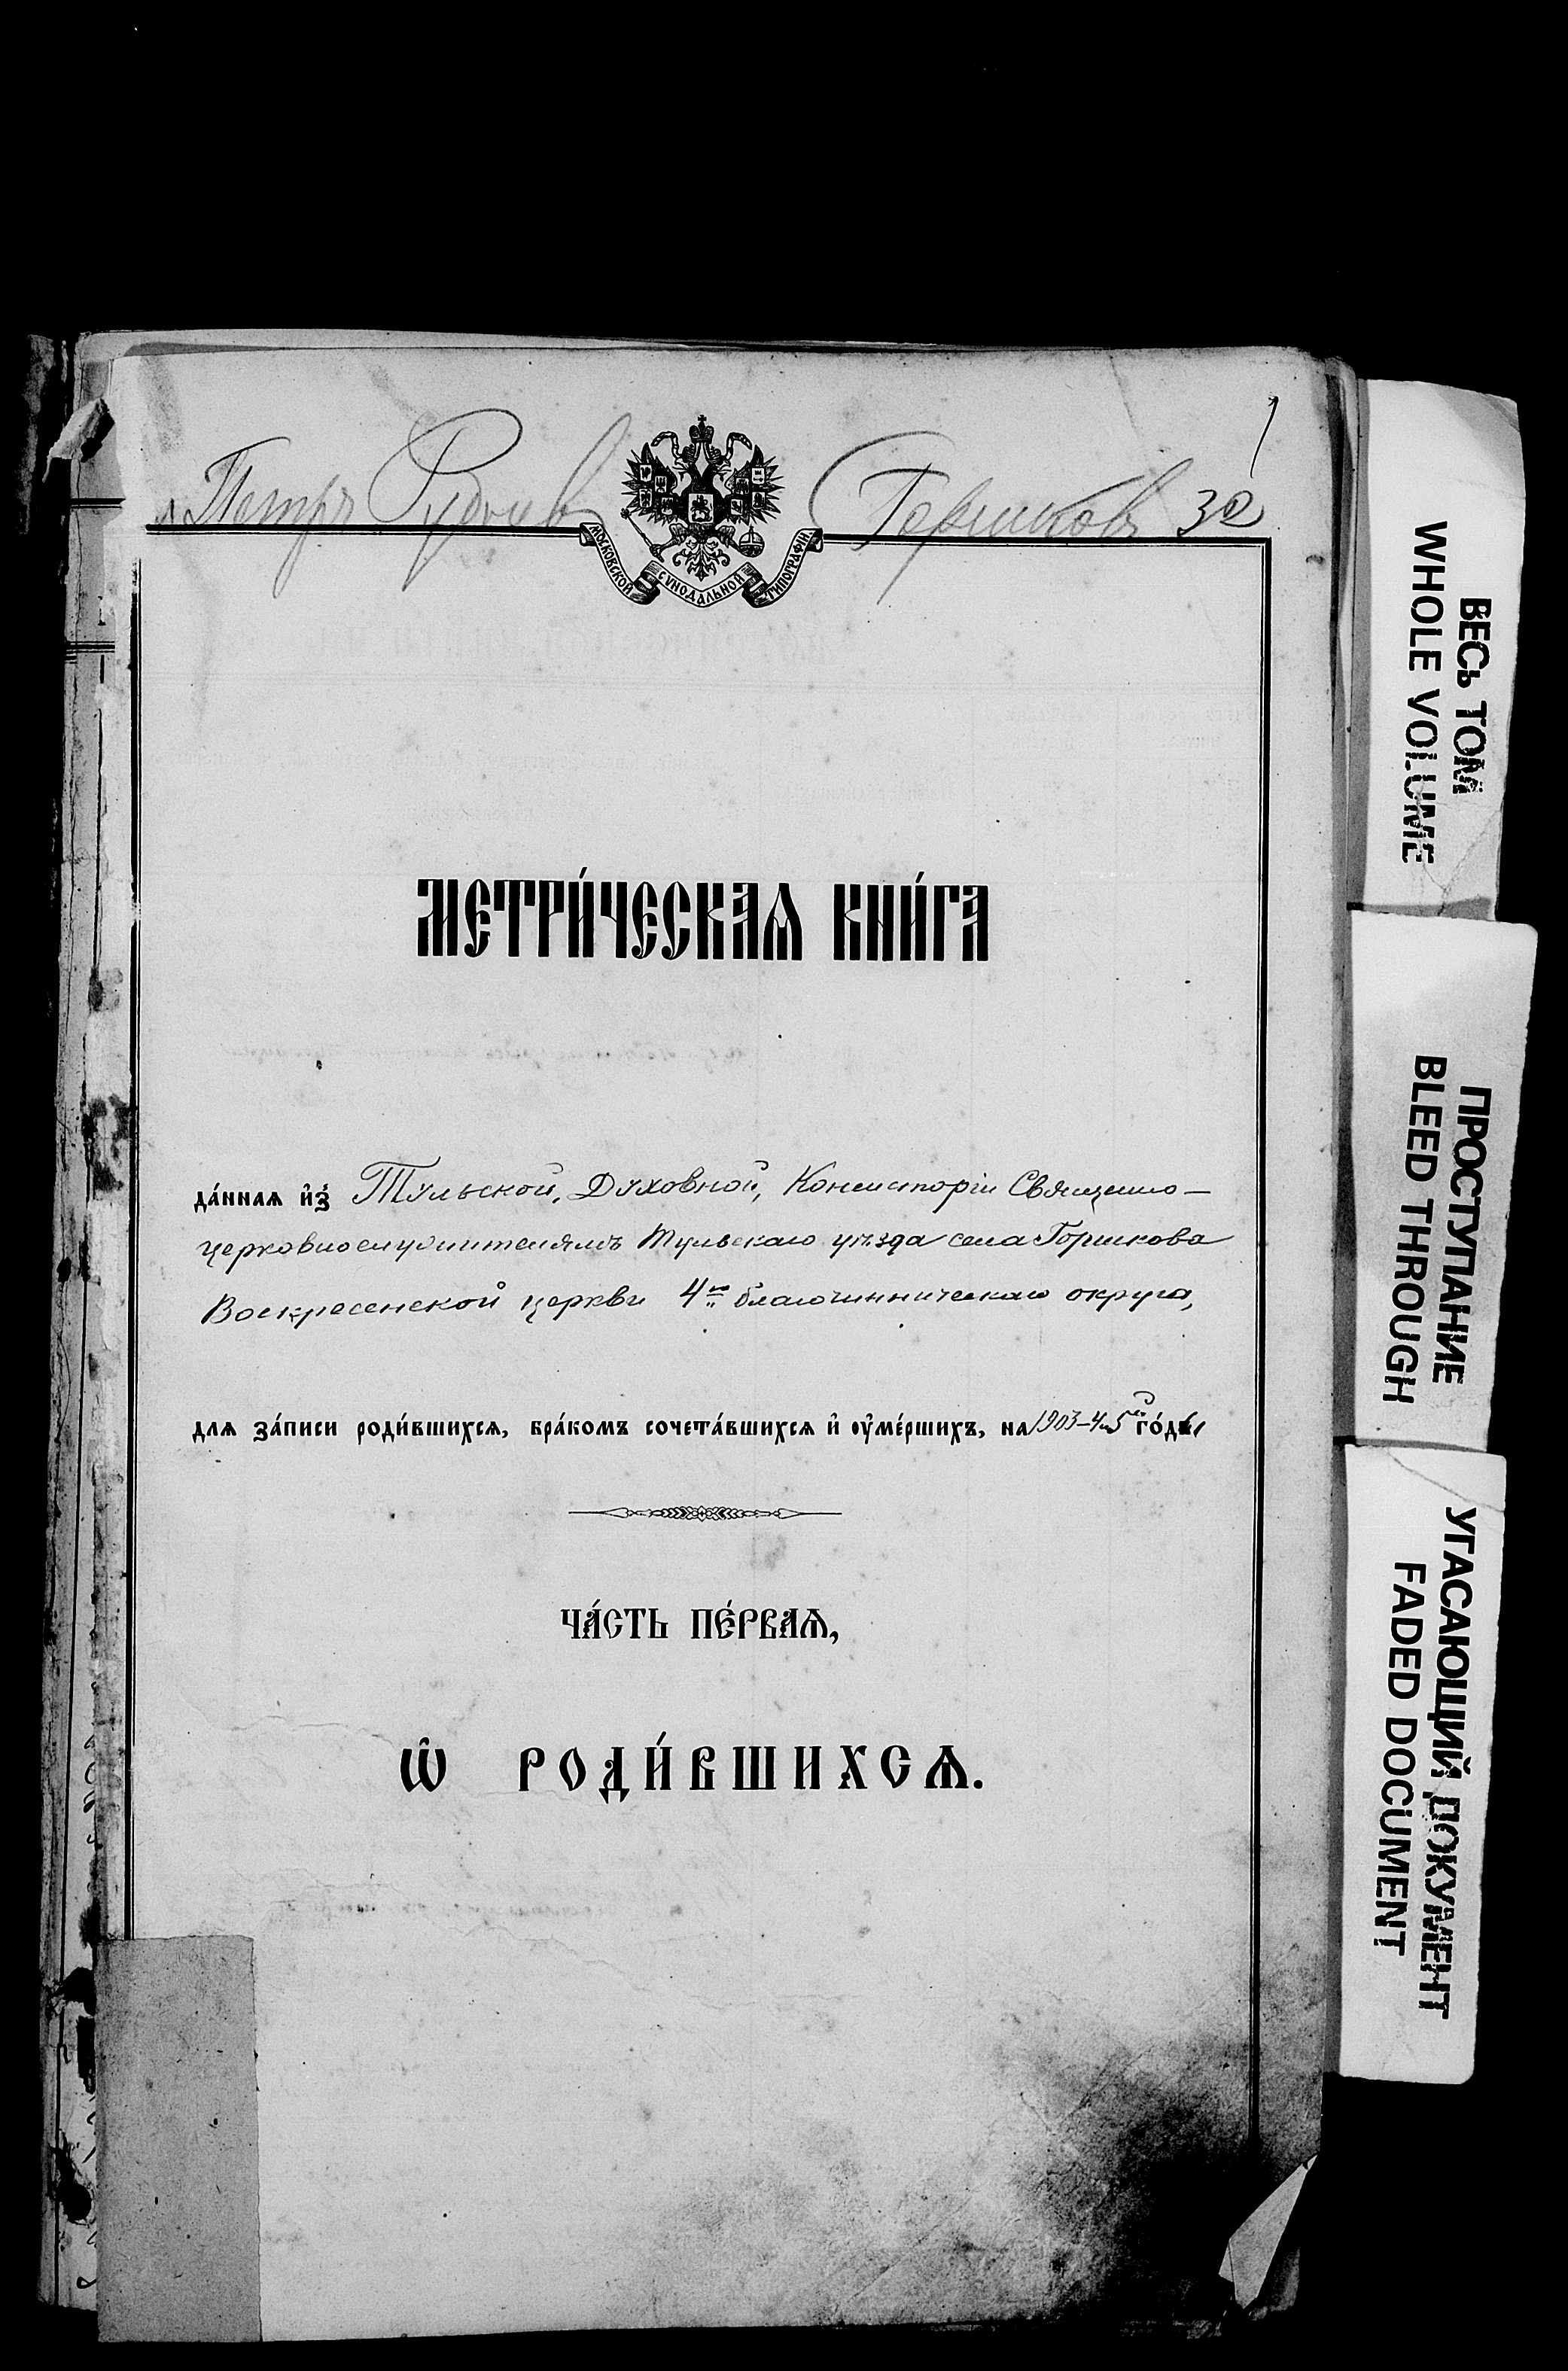 1
Петръ Горшковъ 30
МОСКОВСКОЙ СѴНОДАЛЬНОЙ ТИПОГРАФІИ
МЕТРИ́ЧЕСКАѦ КНИ́ГА
да́нная и҆з̾ Тульской, Духовной, Консисторіи Священно-
церковнослужителямъ Тульскаго уѣзда села Горшкова
Воскресенской церкви 4го благочинническаго округа,
для за́писи роди́вшихсѧ, бра́комъ сочета́вшихсѧ и҆ оу҆ме́ршихъ, на 1903-4и5й го́ды
ЧА́СТЬ ПЕ́РВАѦ,
Ѡ҆ РОДИ́ВШИХСѦ.
ВЕСЬ ТОМ
WHOLE VOLUME
ПРОСТУПАНИЕ
BLEED THROUGH
УГАСАЮЩИЙ ДОКУМЕНТ
FADED DOCUMENT